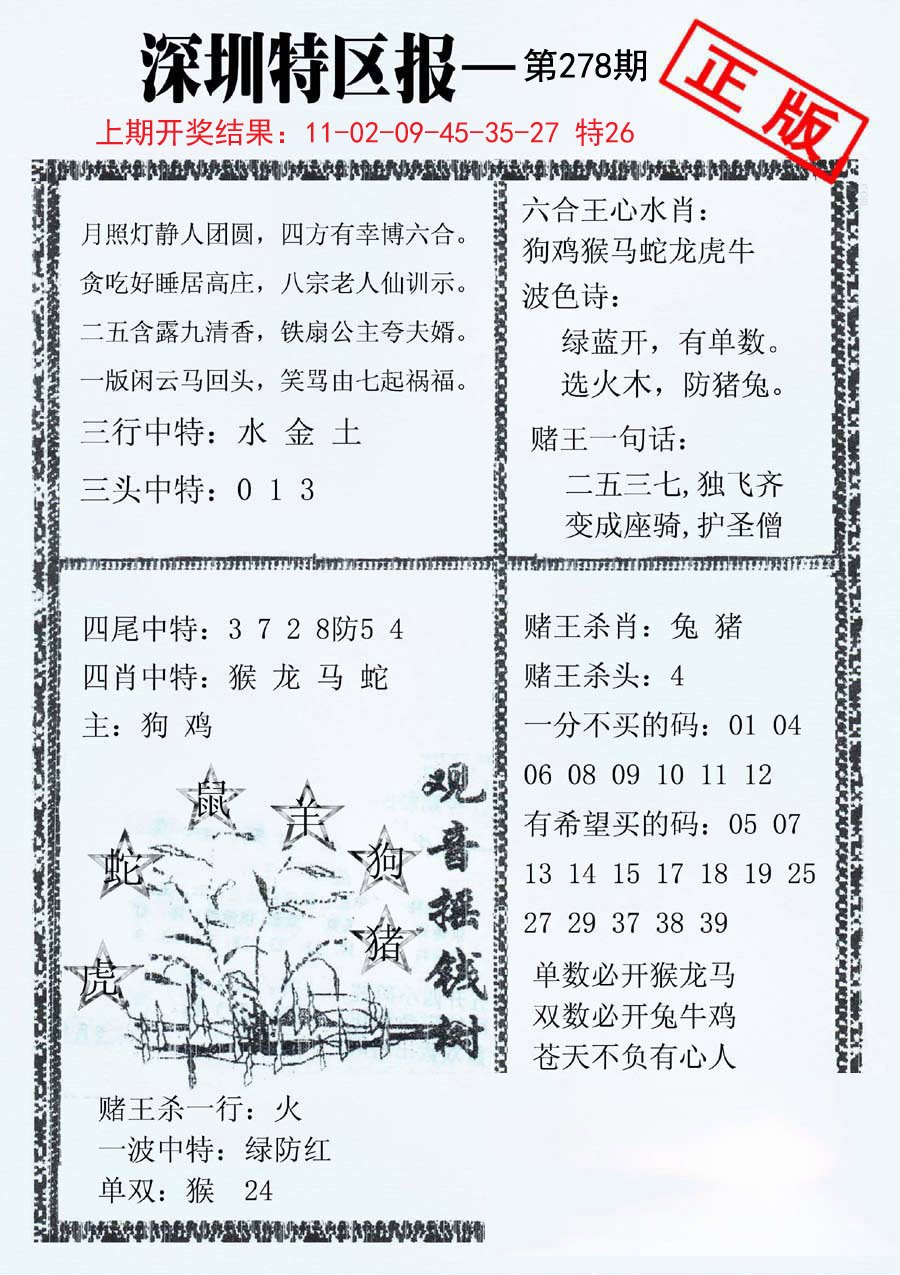 深圳特区报—第278期
正版
上期开奖结果：11-02-09-45-35-27 特26
月照灯静人团圆，四方有幸博六合。
贪吃好睡居高庄，八宗老人仙训示。
二五含露九清香，铁扇公主夸夫婿。
一版闲云马回头，笑骂由七起祸福。
三行中特：水 金 土
三头中特：0 1 3
六合王心水肖：
狗鸡猴马蛇龙虎牛
波色诗：
绿蓝开，有单数。
选火木，防猪兔。
赌王一句话：
二五三七,独飞齐
变成座骑,护圣僧
四尾中特：3 7 2 8防5 4
四肖中特：猴 龙 马 蛇
主：狗 鸡
鼠
羊
蛇
狗
猪
虎
观音摇钱树
赌王杀一行：火
一波中特：绿防红
单双：猴 24
赌王杀肖：兔 猪
赌王杀头：4
一分不买的码：01 04
06 08 09 10 11 12
有希望买的码：05 07
13 14 15 17 18 19 25
27 29 37 38 39
单数必开猴龙马
双数必开兔牛鸡
苍天不负有心人